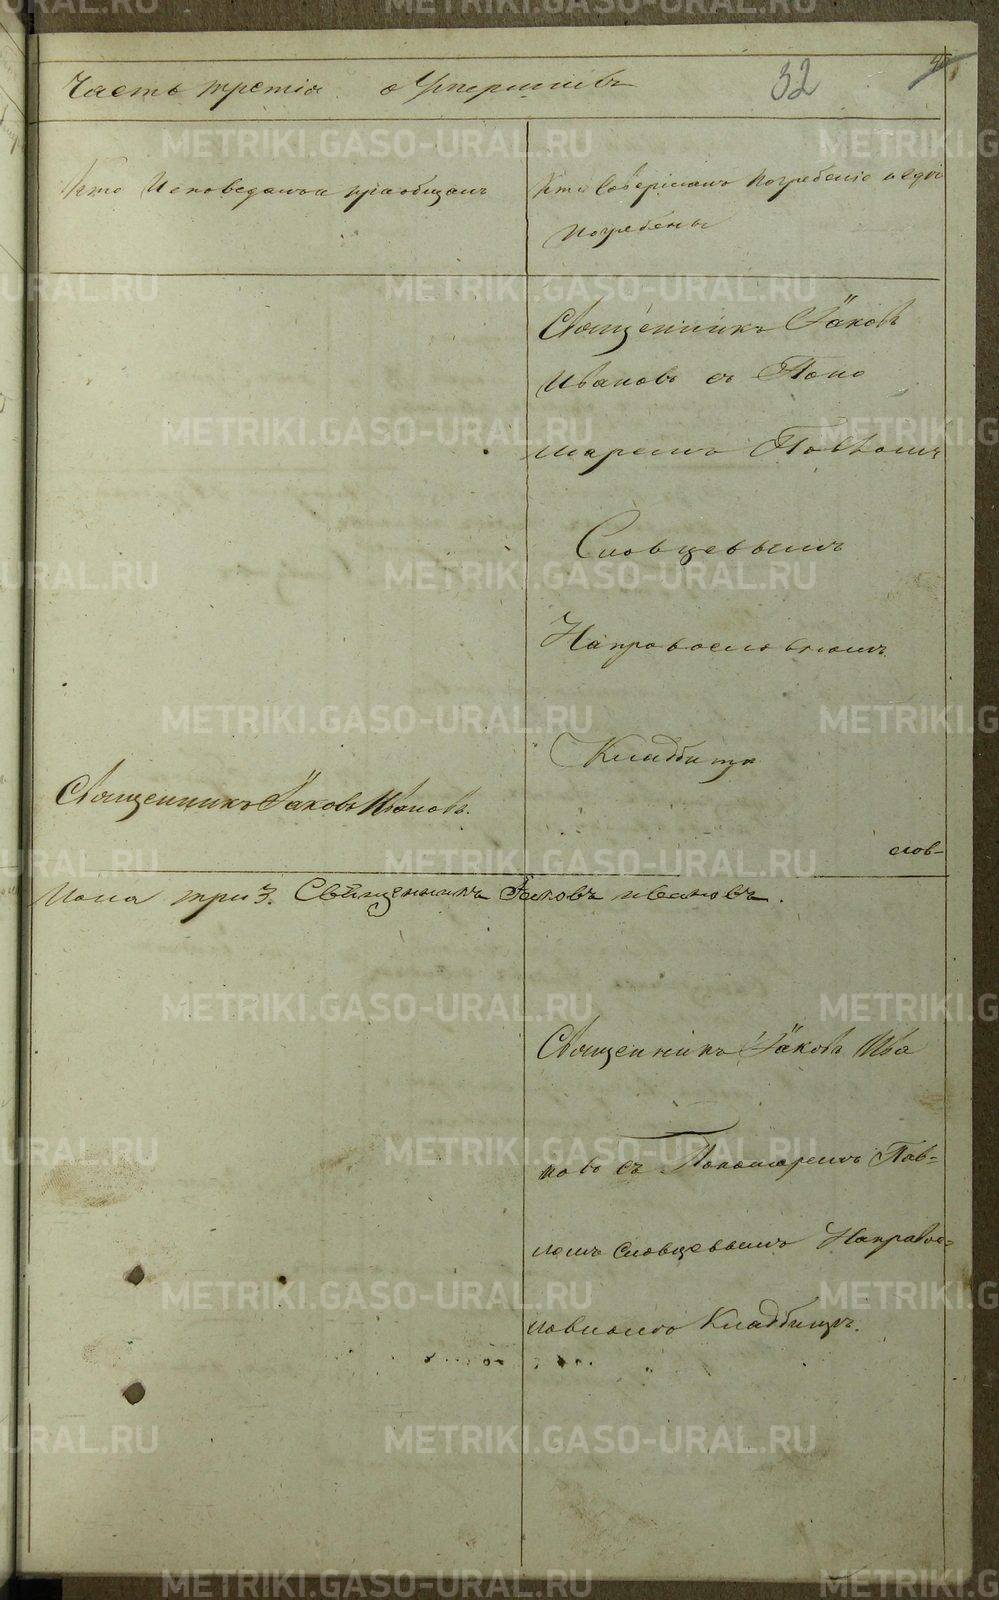 Часть третiя о Умершихъ 32
Кто Исповедалъ и прiобщалъ
Кто Совершалъ Погребенiе и где
погребены
Священникъ Iаковъ
Ивановъ съ Поно
маремъ Павломъ
Словцевымъ
На православномъ
Кладбищѣ
Священникъ Iаковъ Ивановъ.
слов-
три 3. Священникъ Iаковъ ивановъ.
Священникъ Iаковъ Ива
новъ съ Пономаремъ Пав=
ломъ Словцевымъ На правос=
лавномъ Кладбищѣ.
METRIKI.GASO-URAL.RU